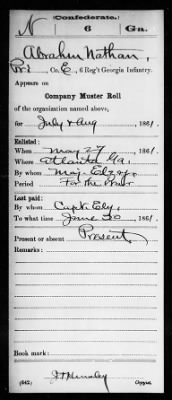 (Confederate.)
N 6 Ga.
Abraham Nathan,
Pvt, Co. E, 6 Reg't Georgia Infantry.
Appears on
Company Muster Roll
of the organization named above,
for July & Aug, 1861.
Enlisted:
When May 27, 1861.
Where Atlanta Ga.
By whom Maj.
Period For the War
Last paid:
By whom Capt. Ely,
To what time June 30, 1861.
Present or absent Present
Remarks:
Book mark:
(642) Copyist.